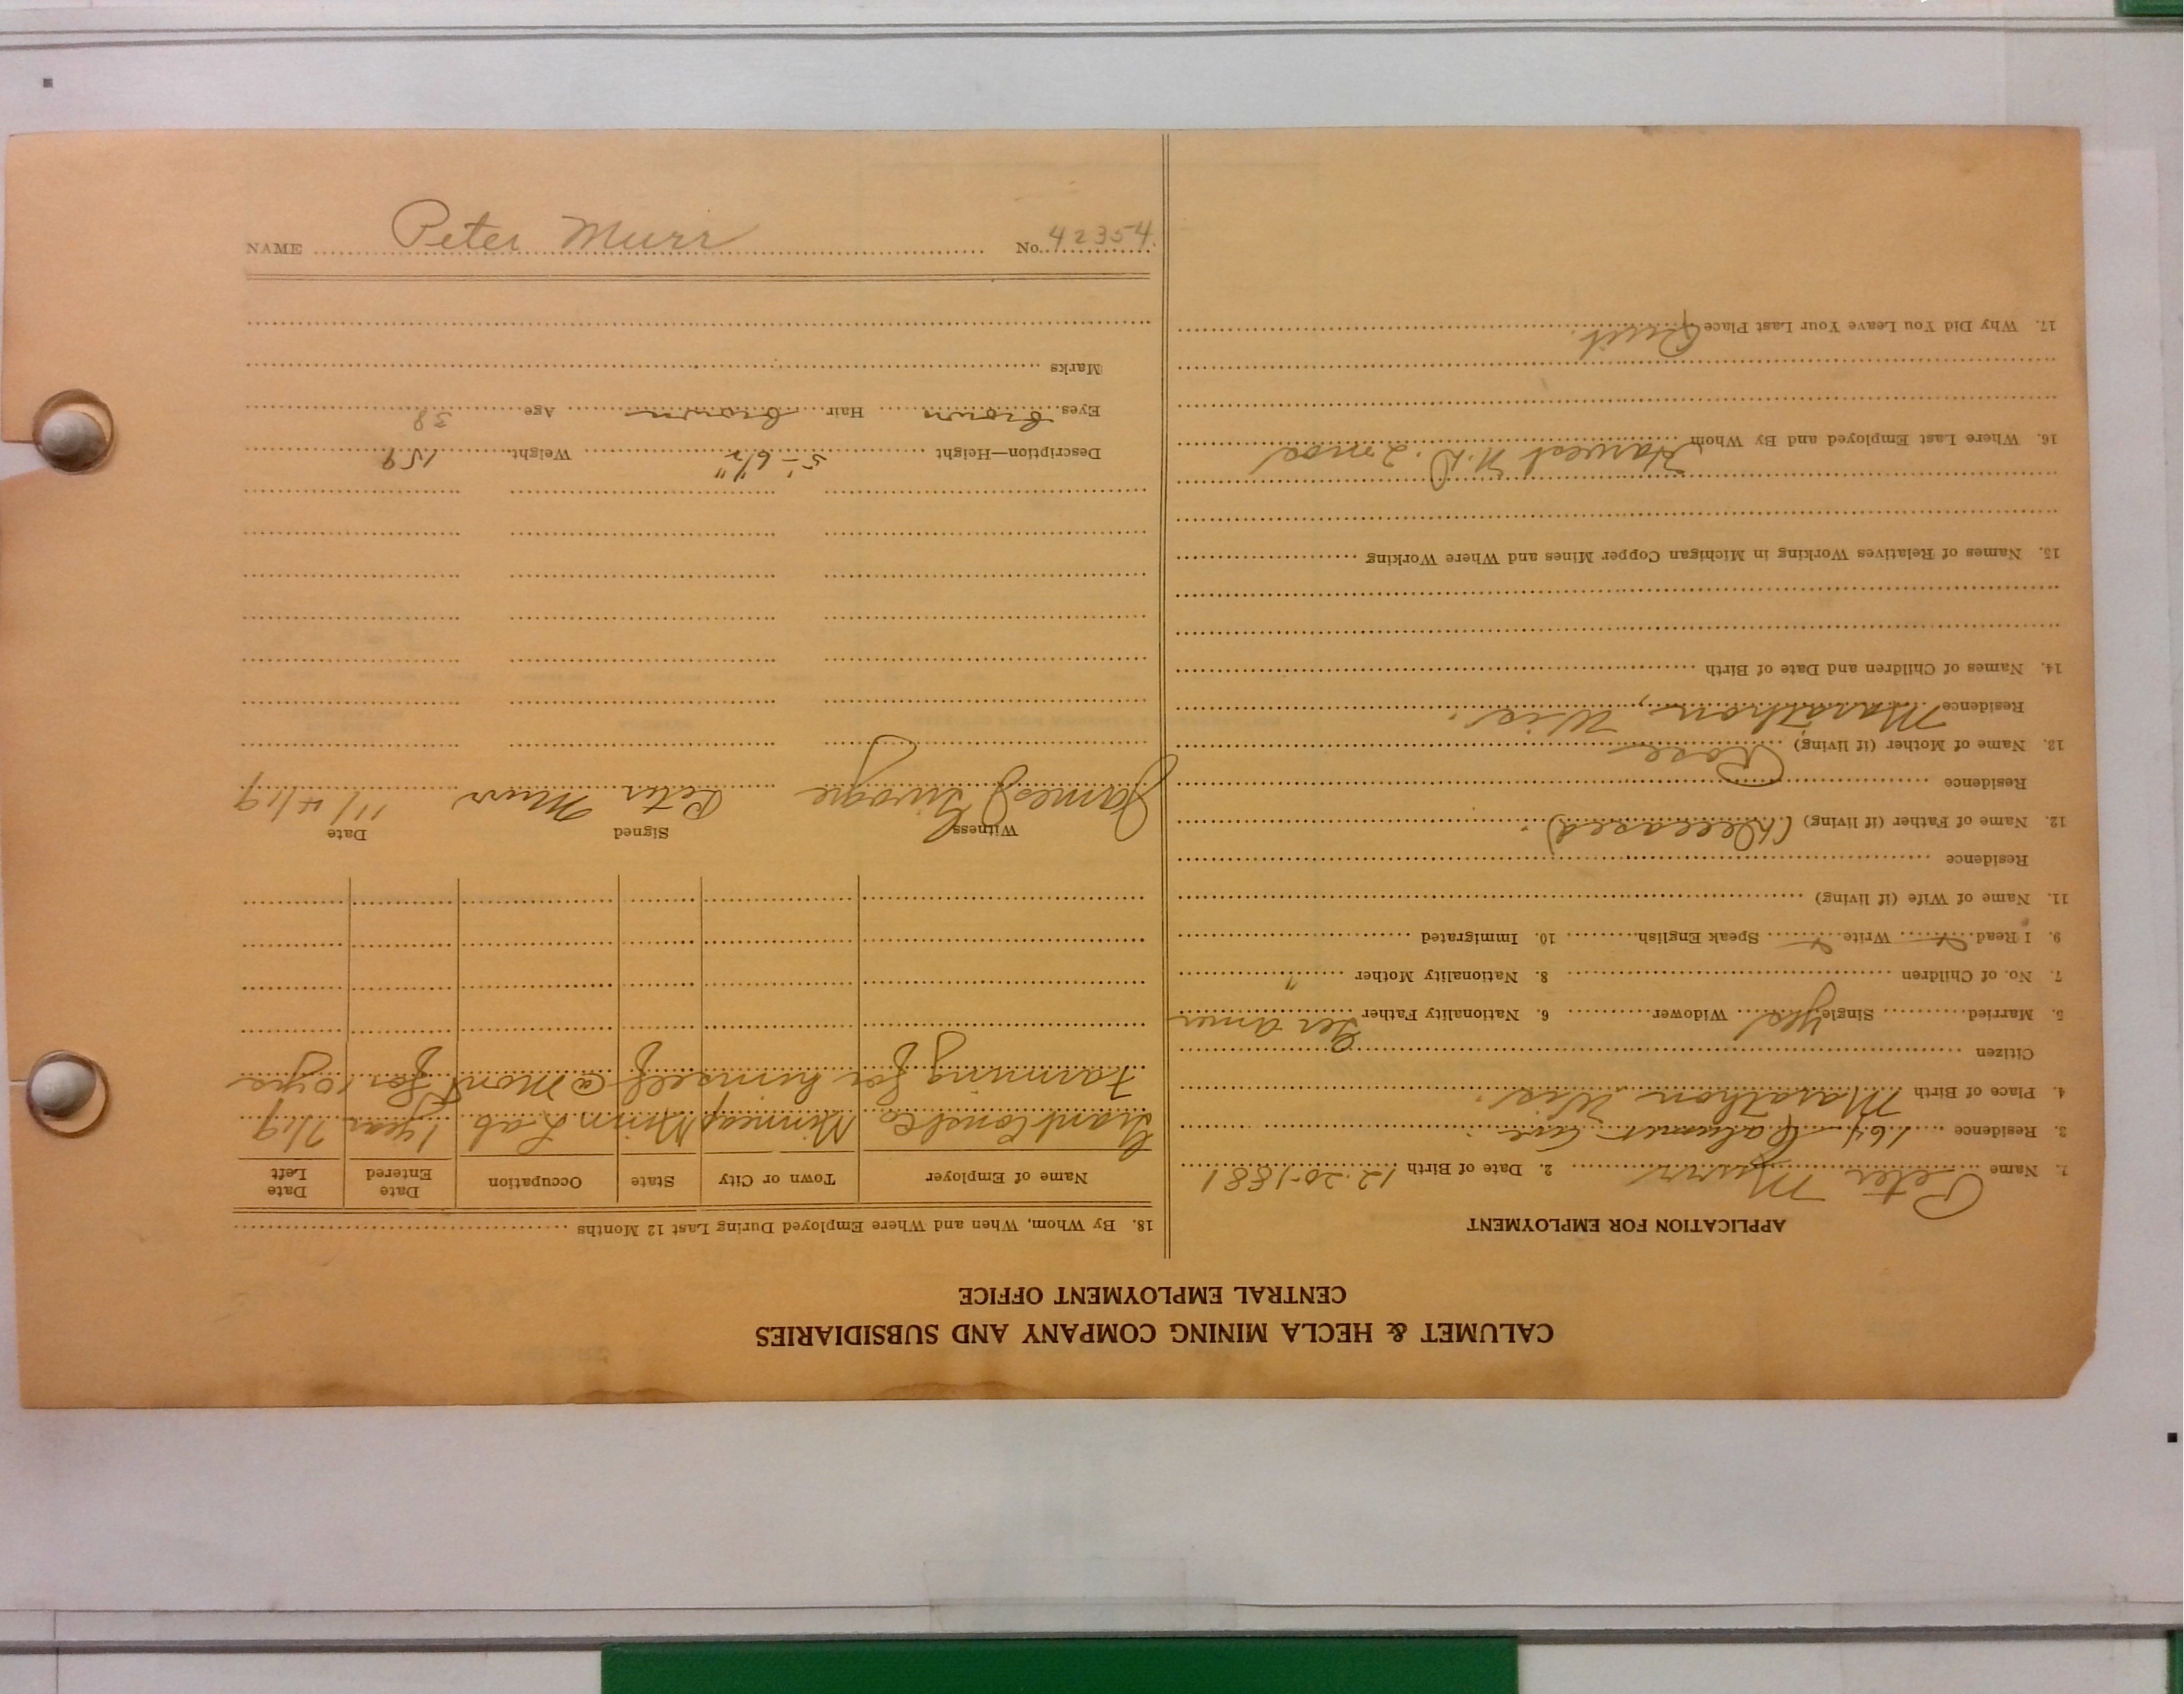 CALUMET & HECLA MINING COMPANY AND SUBSIDIARIES
CENTRAL EMPLOYMENT OFFICE
APPLICATION FOR EMPLOYMENT
1. Name Peter Murr 2. Date of Birth 12-20-1881
3. Residence 164 Calumet Ave
4. Place of Birth Marathon Wis.
Citizen
5. Married Single yes Widower 6. Nationality Father Ger Amer
7. No. of Children 8. Nationality Mother "
9. I Read Write Speak English 10. Immigrated
11. Name of Wife (if living)
Residence
12. Name of Father (if living) (Deceased)
Residence
13. Name of Mother (if living) Rose
Residence Marathon, Wis.
14. Names of Children and Date of Birth
15. Names of Relatives Working in Michigan Copper Mines and Where Working
16. Where Last Employed and By Whom Harvest N.D. 2 mos
17. Why Did You Leave Your Last Place Quit.
18. By Whom, When and Where Employed During Last 12 Months
Name of Employer Town or City State Occupation Date Entered Date Left
Grant Const Co Minneap Minn Lab 1 year 7/19
Farming for himself @ Mont for 10 yrs
Witness Signed Date
James Peter Murr 11/4/19
Description—Height 5'-6 1/2" Weight 159
Eyes brown Hair brown Age 38
Marks
NAME Peter Murr No. 42354.